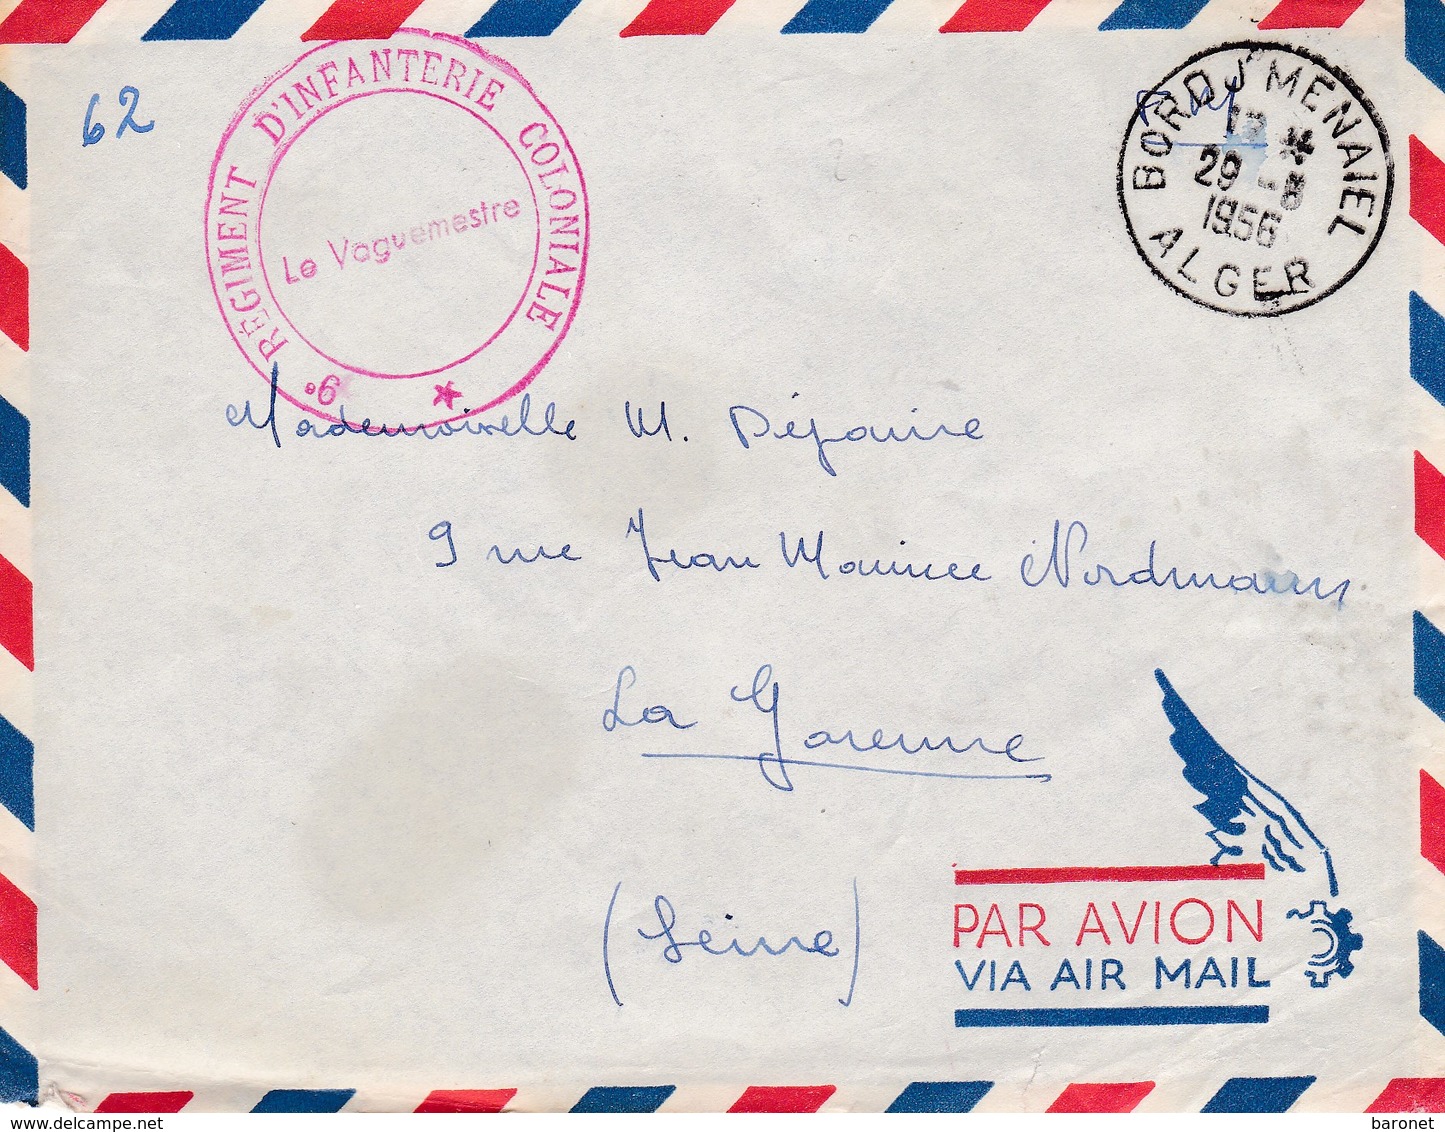 62
9e RÉGIMENT D'INFANTERIE COLONIALE
Le Vaguemestre
F M
BORDJ MENAIEL
29 - 8
1956
ALGER
Mademoiselle M. Déjouire
9 rue Jean Maurice Nordmann
La Garenne
(Seine)
PAR AVION
VIA AIR MAIL
delcampe.net
baronet